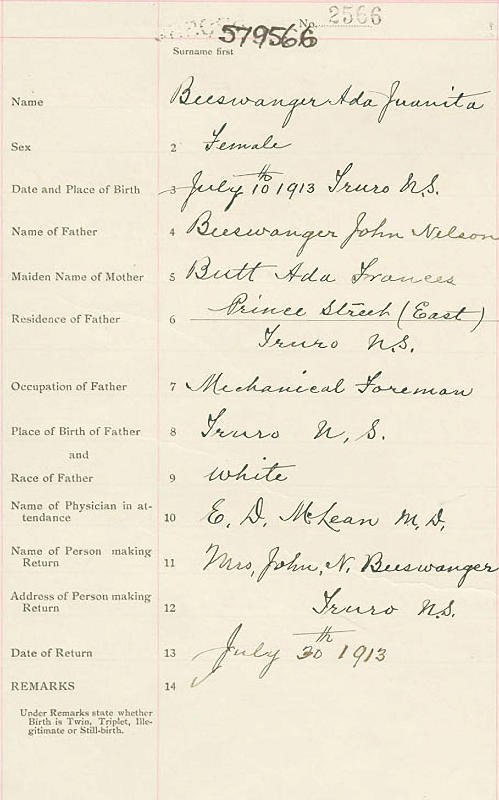 No. 2566
579566
Surname first
Name Beeswanger Ada Juanita
Sex 2 Female
Date and Place of Birth 3 July 10th 1913 Truro N.S.
Name of Father 4 Beeswanger John Nelson
Maiden Name of Mother 5 Butt Ada Frances
Residence of Father 6 Prince Street (East)
Truro N.S.
Occupation of Father 7 Mechanical Foreman
Place of Birth of Father 8 Truro N, S.
and
Race of Father 9 White
Name of Physician in at-
tendance 10 E. D, McLean M, D,
Name of Person making
Return 11 Mrs, John, N. Beeswanger
Address of Person making
Return 12 Truro N.S.
Date of Return 13 July 30th 1913
REMARKS 14
Under Remarks state whether
Birth is Twin, Triplet, Ille-
gitimate or Still-birth.